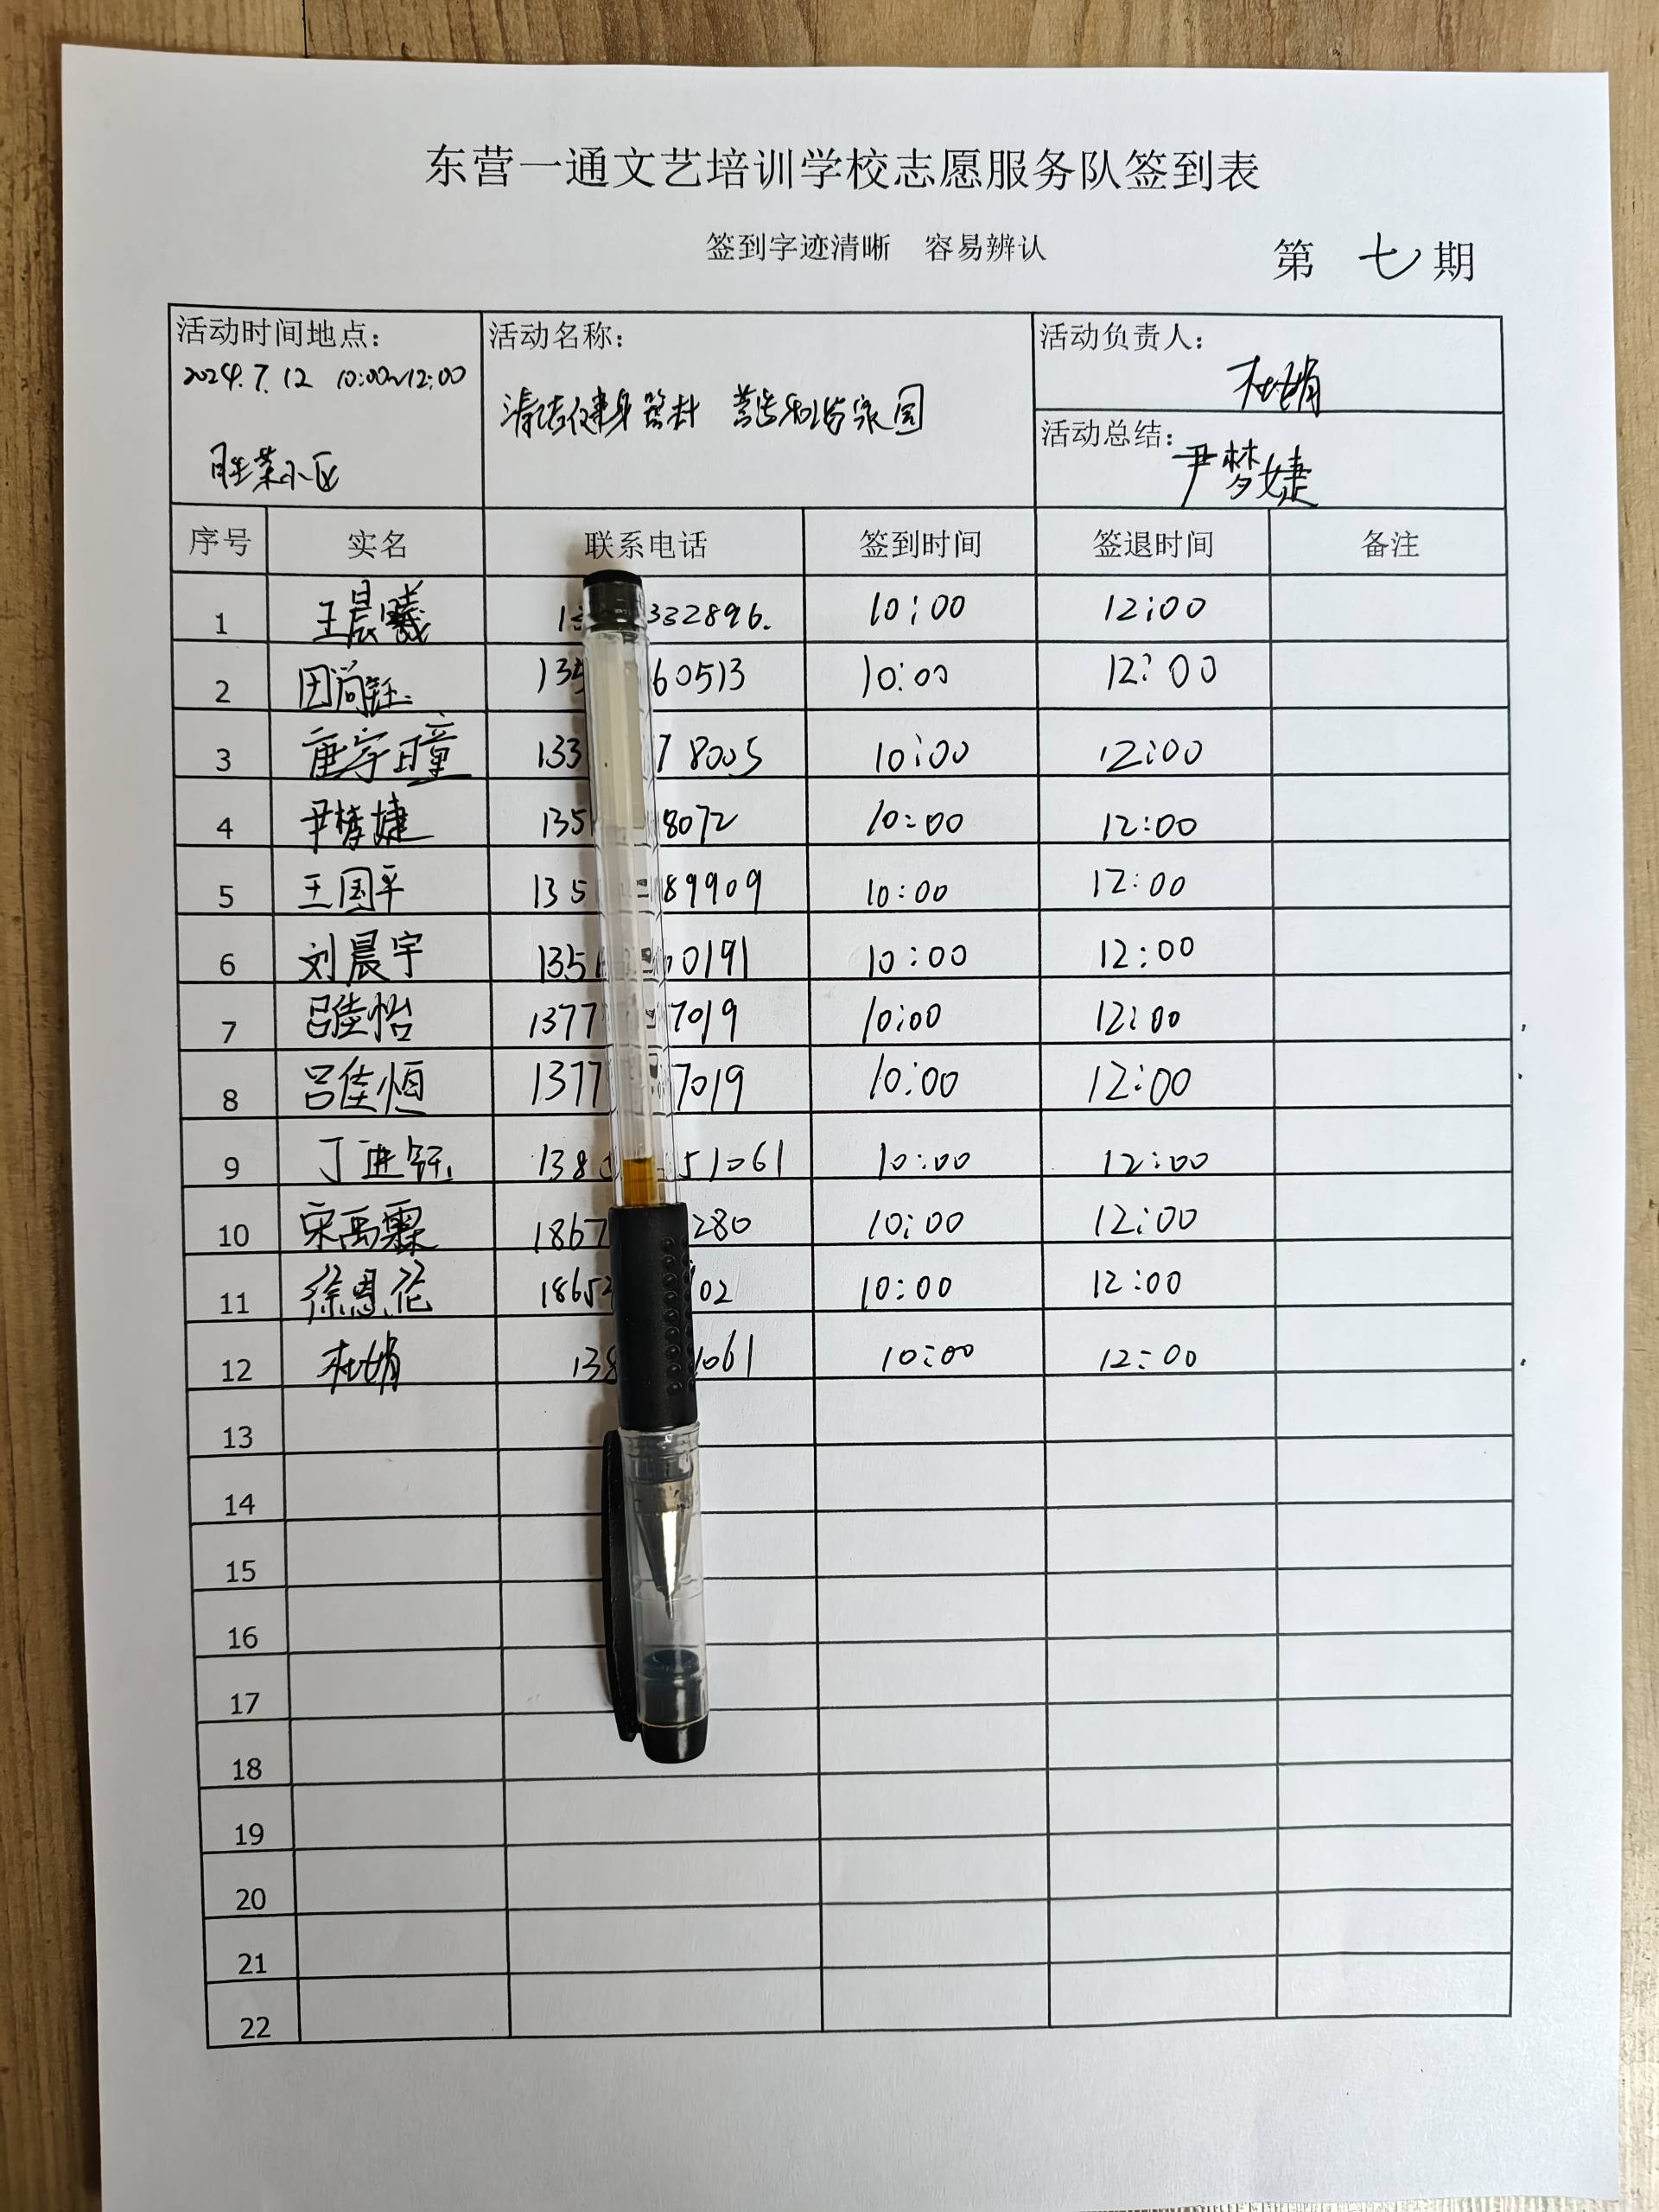 东营一通文艺培训学校志愿服务队签到表
签到字迹清晰 容易辨认 第 七 期
活动时间地点： 活动名称： 活动负责人：
2024.7.12 10:00~12:00 杜娟
清洁健身器材 营造和谐家园
活动总结：
胜荣小区 尹梦婕
序号 实名 联系电话 签到时间 签退时间 备注
1 王晨曦 13 332896. 10:00 12:00
2 田尚钰 135 60513 10:00 12:00
3 唐宇曈 133 78005 10:00 12:00
4 尹梦婕 135 8072 10:00 12:00
5 王国平 135 89909 10:00 12:00
6 刘晨宇 1351 0191 10:00 12:00
7 吕佳怡 1377 7019 10:00 12:00
8 吕佳恒 1377 7019 10:00 12:00
9 丁进钰 138 51061 10:00 12:00
10 宋禹霖 1867 280 10:00 12:00
11 徐恩花 1865 02 10:00 12:00
12 杜娟 138 1061 10:00 12:00
13
14
15
16
17
18
19
20
21
22